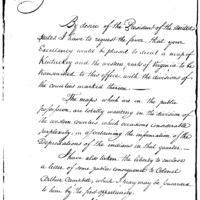 By desire of the President of the United
States I have to request the favor that your
Excellency would be pleased to direct a map of
Kentuckey and the western parts of Virginia to be
transmitted to this office, with the divisions of
the counties marked thereon.
The maps which are in the public
possession, are totally wanting in the divisions of
the western counties which occasions considerable
perplexity, in ascertaining the information of the
Depredations of the indians in that quarter
I have also taken the liberty to enclose
a letter of some public consequence to Colonel
Arthur Campbell, which I pray may be forwarded
to him by the first opportunity.